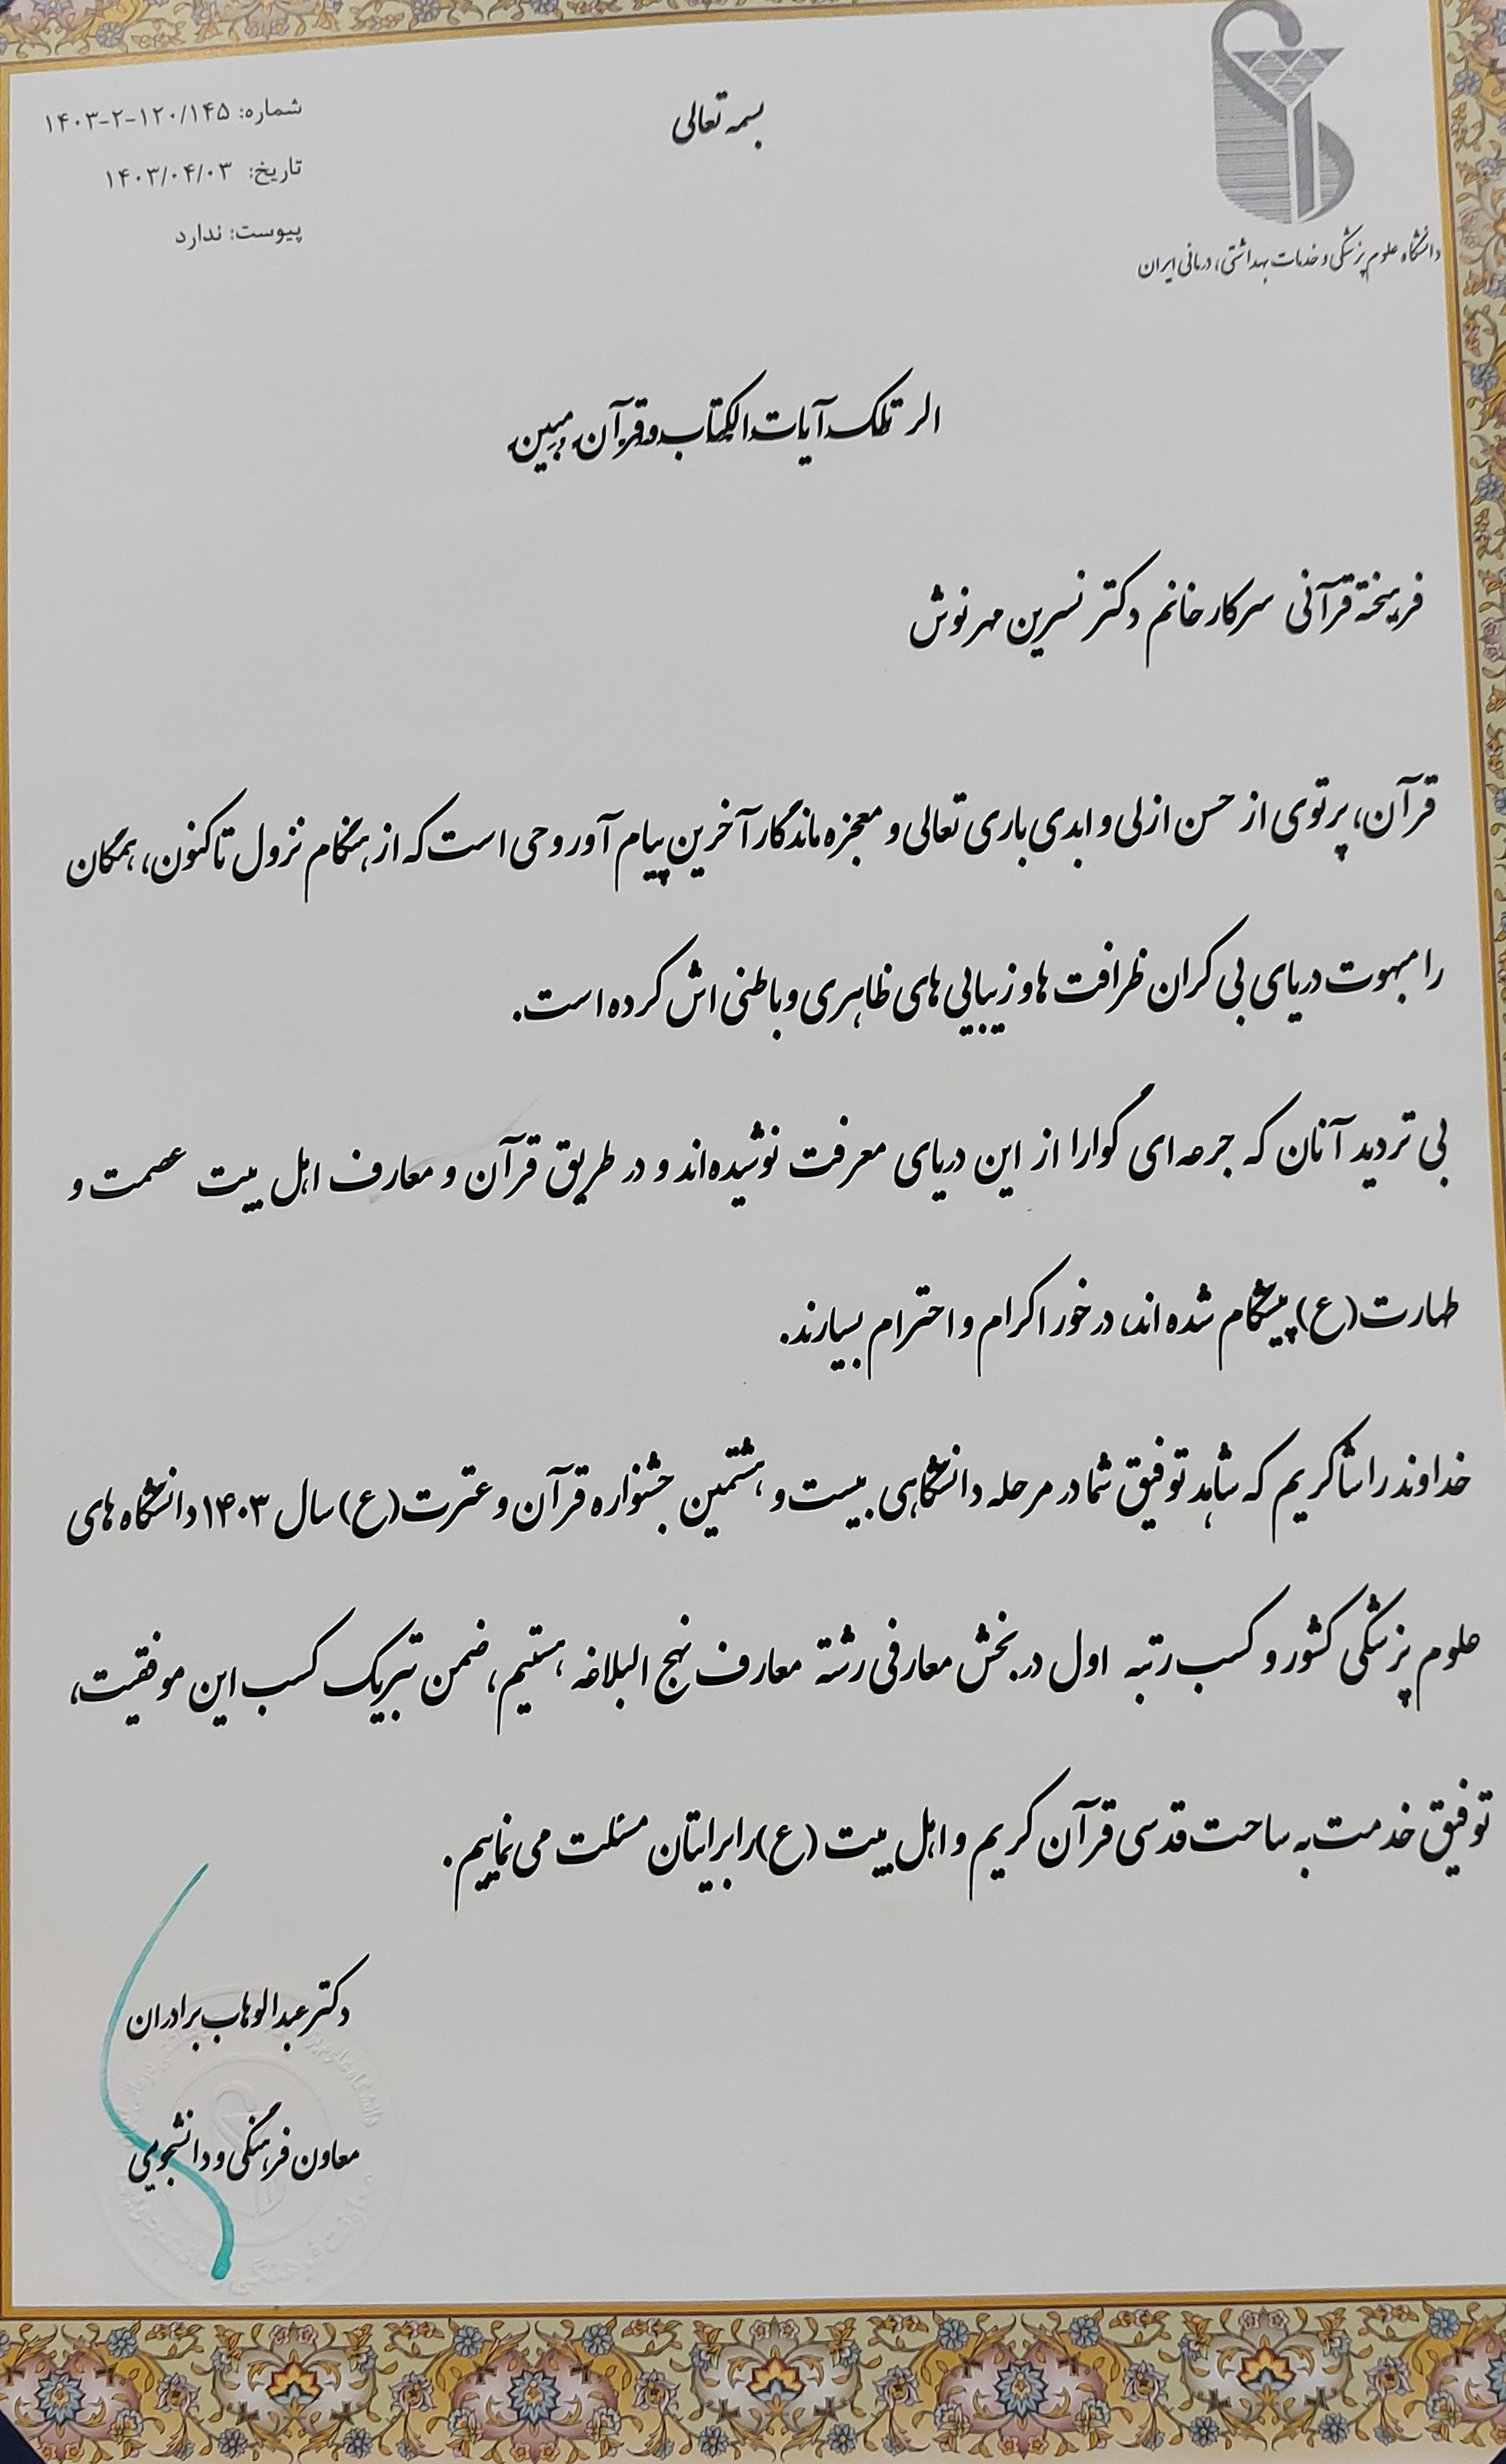 بسمه تعالی
شماره: ۱۴۰۳-۲-۱۲۰/۱۴۵
تاریخ: ۱۴۰۳/۰۴/۰۳
پیوست: ندارد
دانشگاه علوم پزشکی و خدمات بهداشتی، درمانی ایران
الر تلک آیات الکتاب و قرآن مبین
فرهیخته قرآنی سرکار خانم دکتر نسرین مهرنوش
قرآن، پرتوی از حسن ازلی و ابدی باری تعالی و معجزه ماندگار آخرین پیام آور وحی است که از هنگام نزول تا کنون، همگان
را مبهوت دریای بی کران ظرافت ها و زیبایی های ظاهری و باطنی اش کرده است.
بی تردید آنان که جرعه ای گوارا از این دریای معرفت نوشیده اند و در طریق قرآن و معارف اهل بیت عصمت و
طهارت (ع) پیشگام شده اند، در خور اکرام و احترام بسیارند.
خداوند را شاکریم که شاهد توفیق شما در مرحله دانشگاهی بیست و هشتمین جشنواره قرآن و عترت (ع) سال ۱۴۰۳ دانشگاه های
علوم پزشکی کشور و کسب رتبه اول در بخش معارفی رشته معارف نهج البلاغه هستیم، ضمن تبریک کسب این موفقیت،
توفیق خدمت به ساحت قدسی قرآن کریم و اهل بیت (ع) را برایتان مسئلت می نماییم.
دکتر عبدالوهاب برادران
معاون فرهنگی و دانشجویی